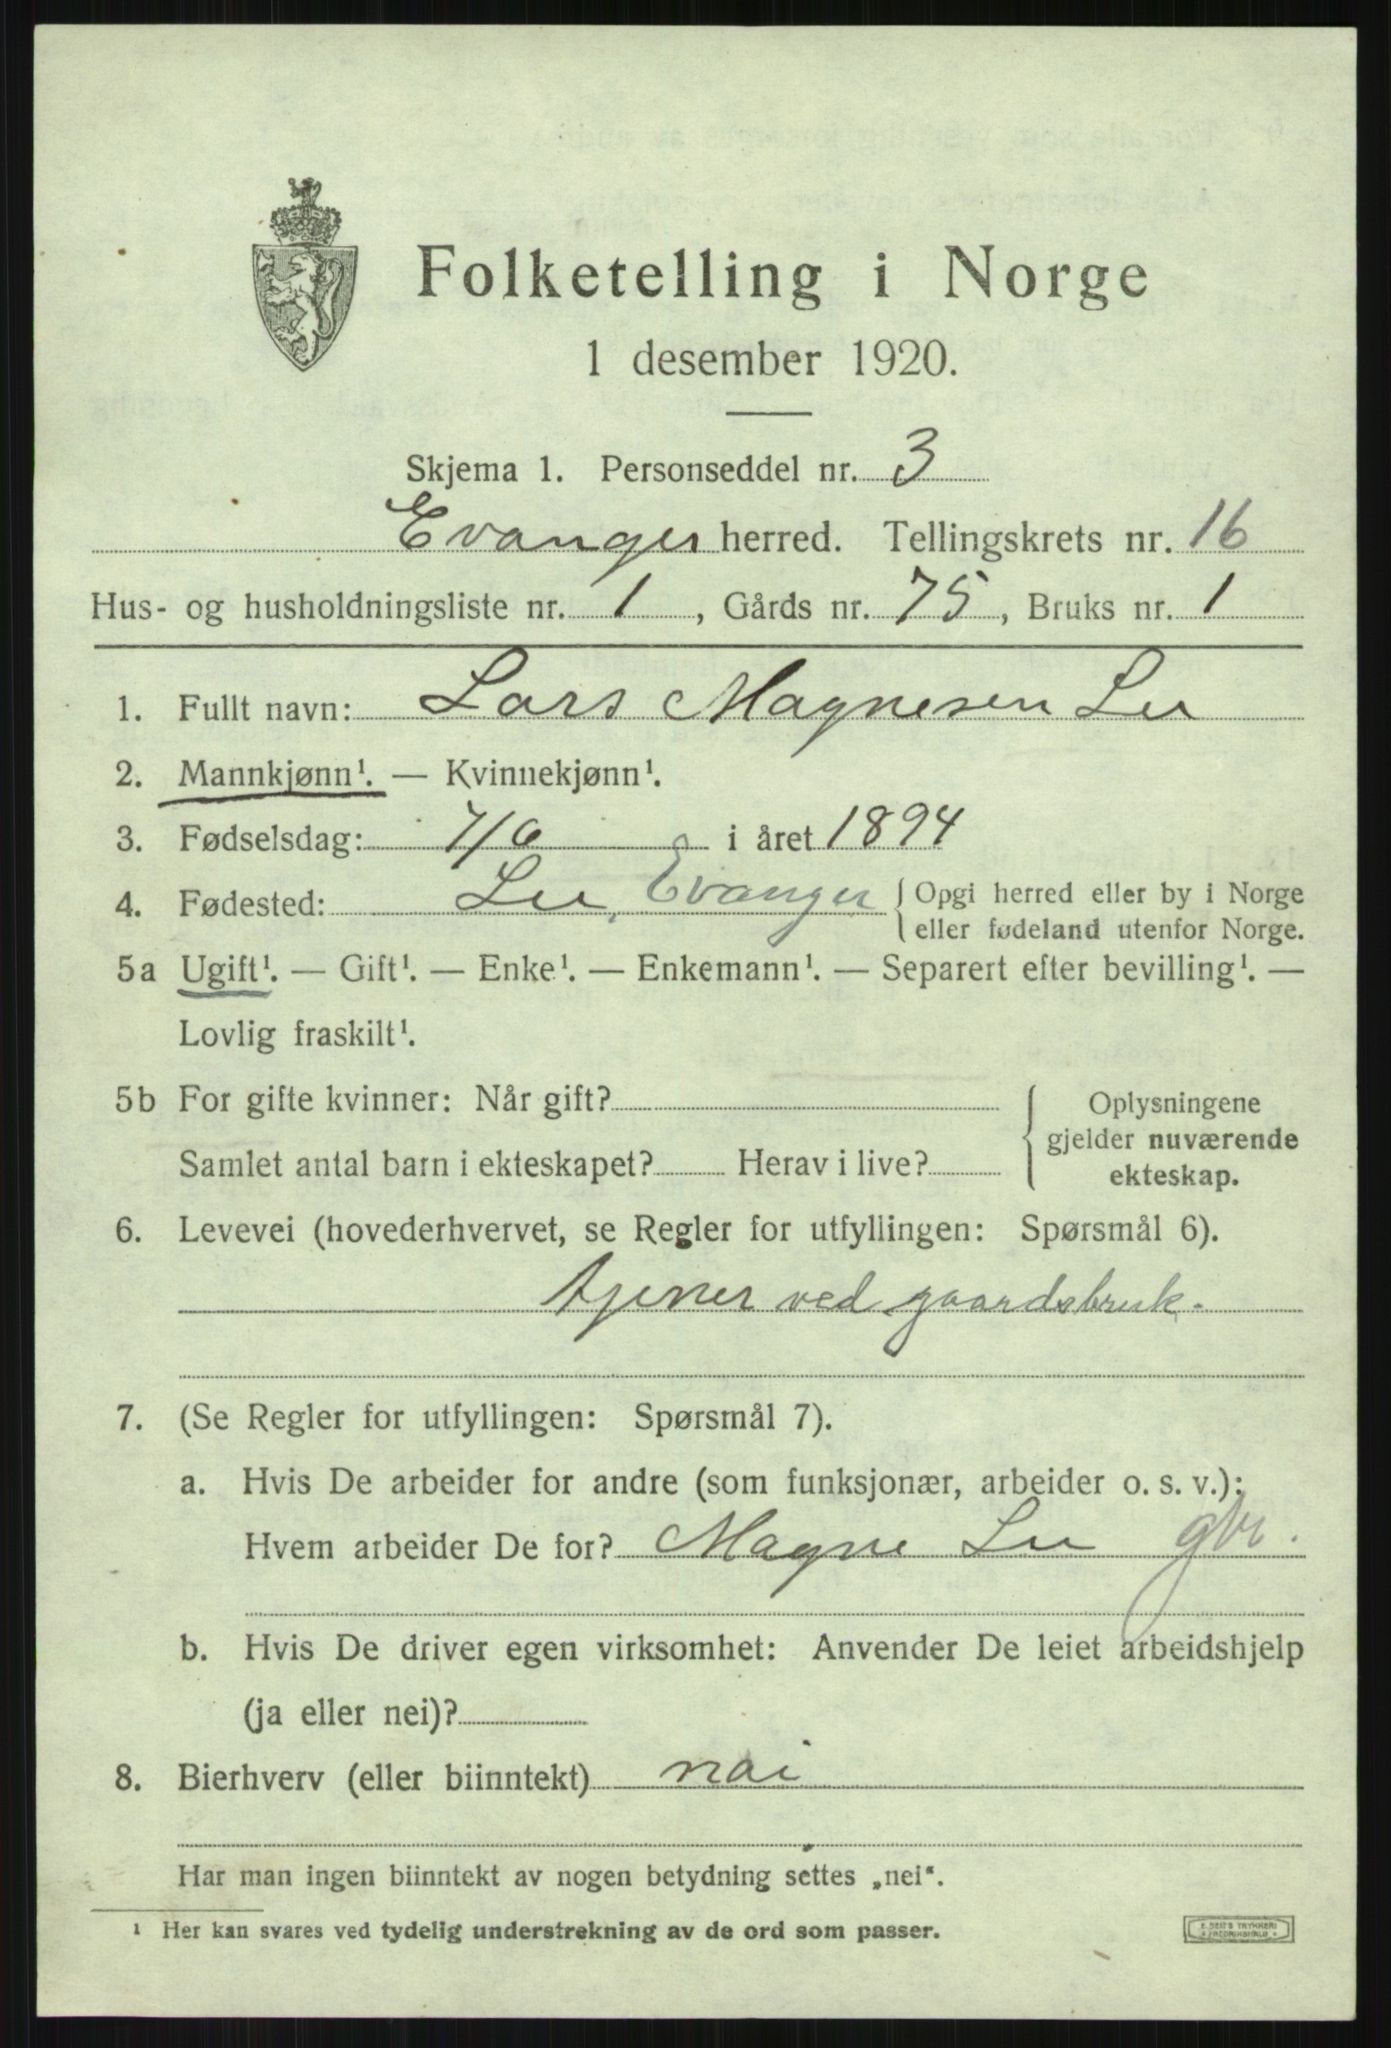 Folketelling i Norge
1 desember 1920.
Skjema 1. Personseddel nr. 3
Evanger herred. Tellingskrets nr. 16
Hus- og husholdningsliste nr. 1, Gårds nr. 75, Bruks nr. 1
1. Fullt navn: Lars Magnesen Lu
2. Mannkjønn¹. — Kvinnekjønn¹.
3. Fødselsdag: 7/6 i året 1894
4. Fødested: Lu, Evanger { Opgi herred eller by i Norge
eller fødeland utenfor Norge.
5a Ugift¹. — Gift¹. — Enke¹. — Enkemann¹. — Separert efter bevilling¹. —
Lovlig fraskilt¹.
5b For gifte kvinner: Når gift?
Samlet antal barn i ekteskapet? Herav i live?
{ Oplysningene
gjelder nuværende
ekteskap.
6. Levevei (hovederhvervet, se Regler for utfyllingen: Spørsmål 6).
tjener ved gaardsbruk.
7. (Se Regler for utfyllingen: Spørsmål 7).
a. Hvis De arbeider for andre (som funksjonær, arbeider o. s. v.):
Hvem arbeider De for? Magne Lu gbr.
b. Hvis De driver egen virksomhet: Anvender De leiet arbeidshjelp
(ja eller nei)?
8. Bierhverv (eller biinntekt) nai
Har man ingen biinntekt av nogen betydning settes „nei“.
¹ Her kan svares ved tydelig understrekning av de ord som passer.